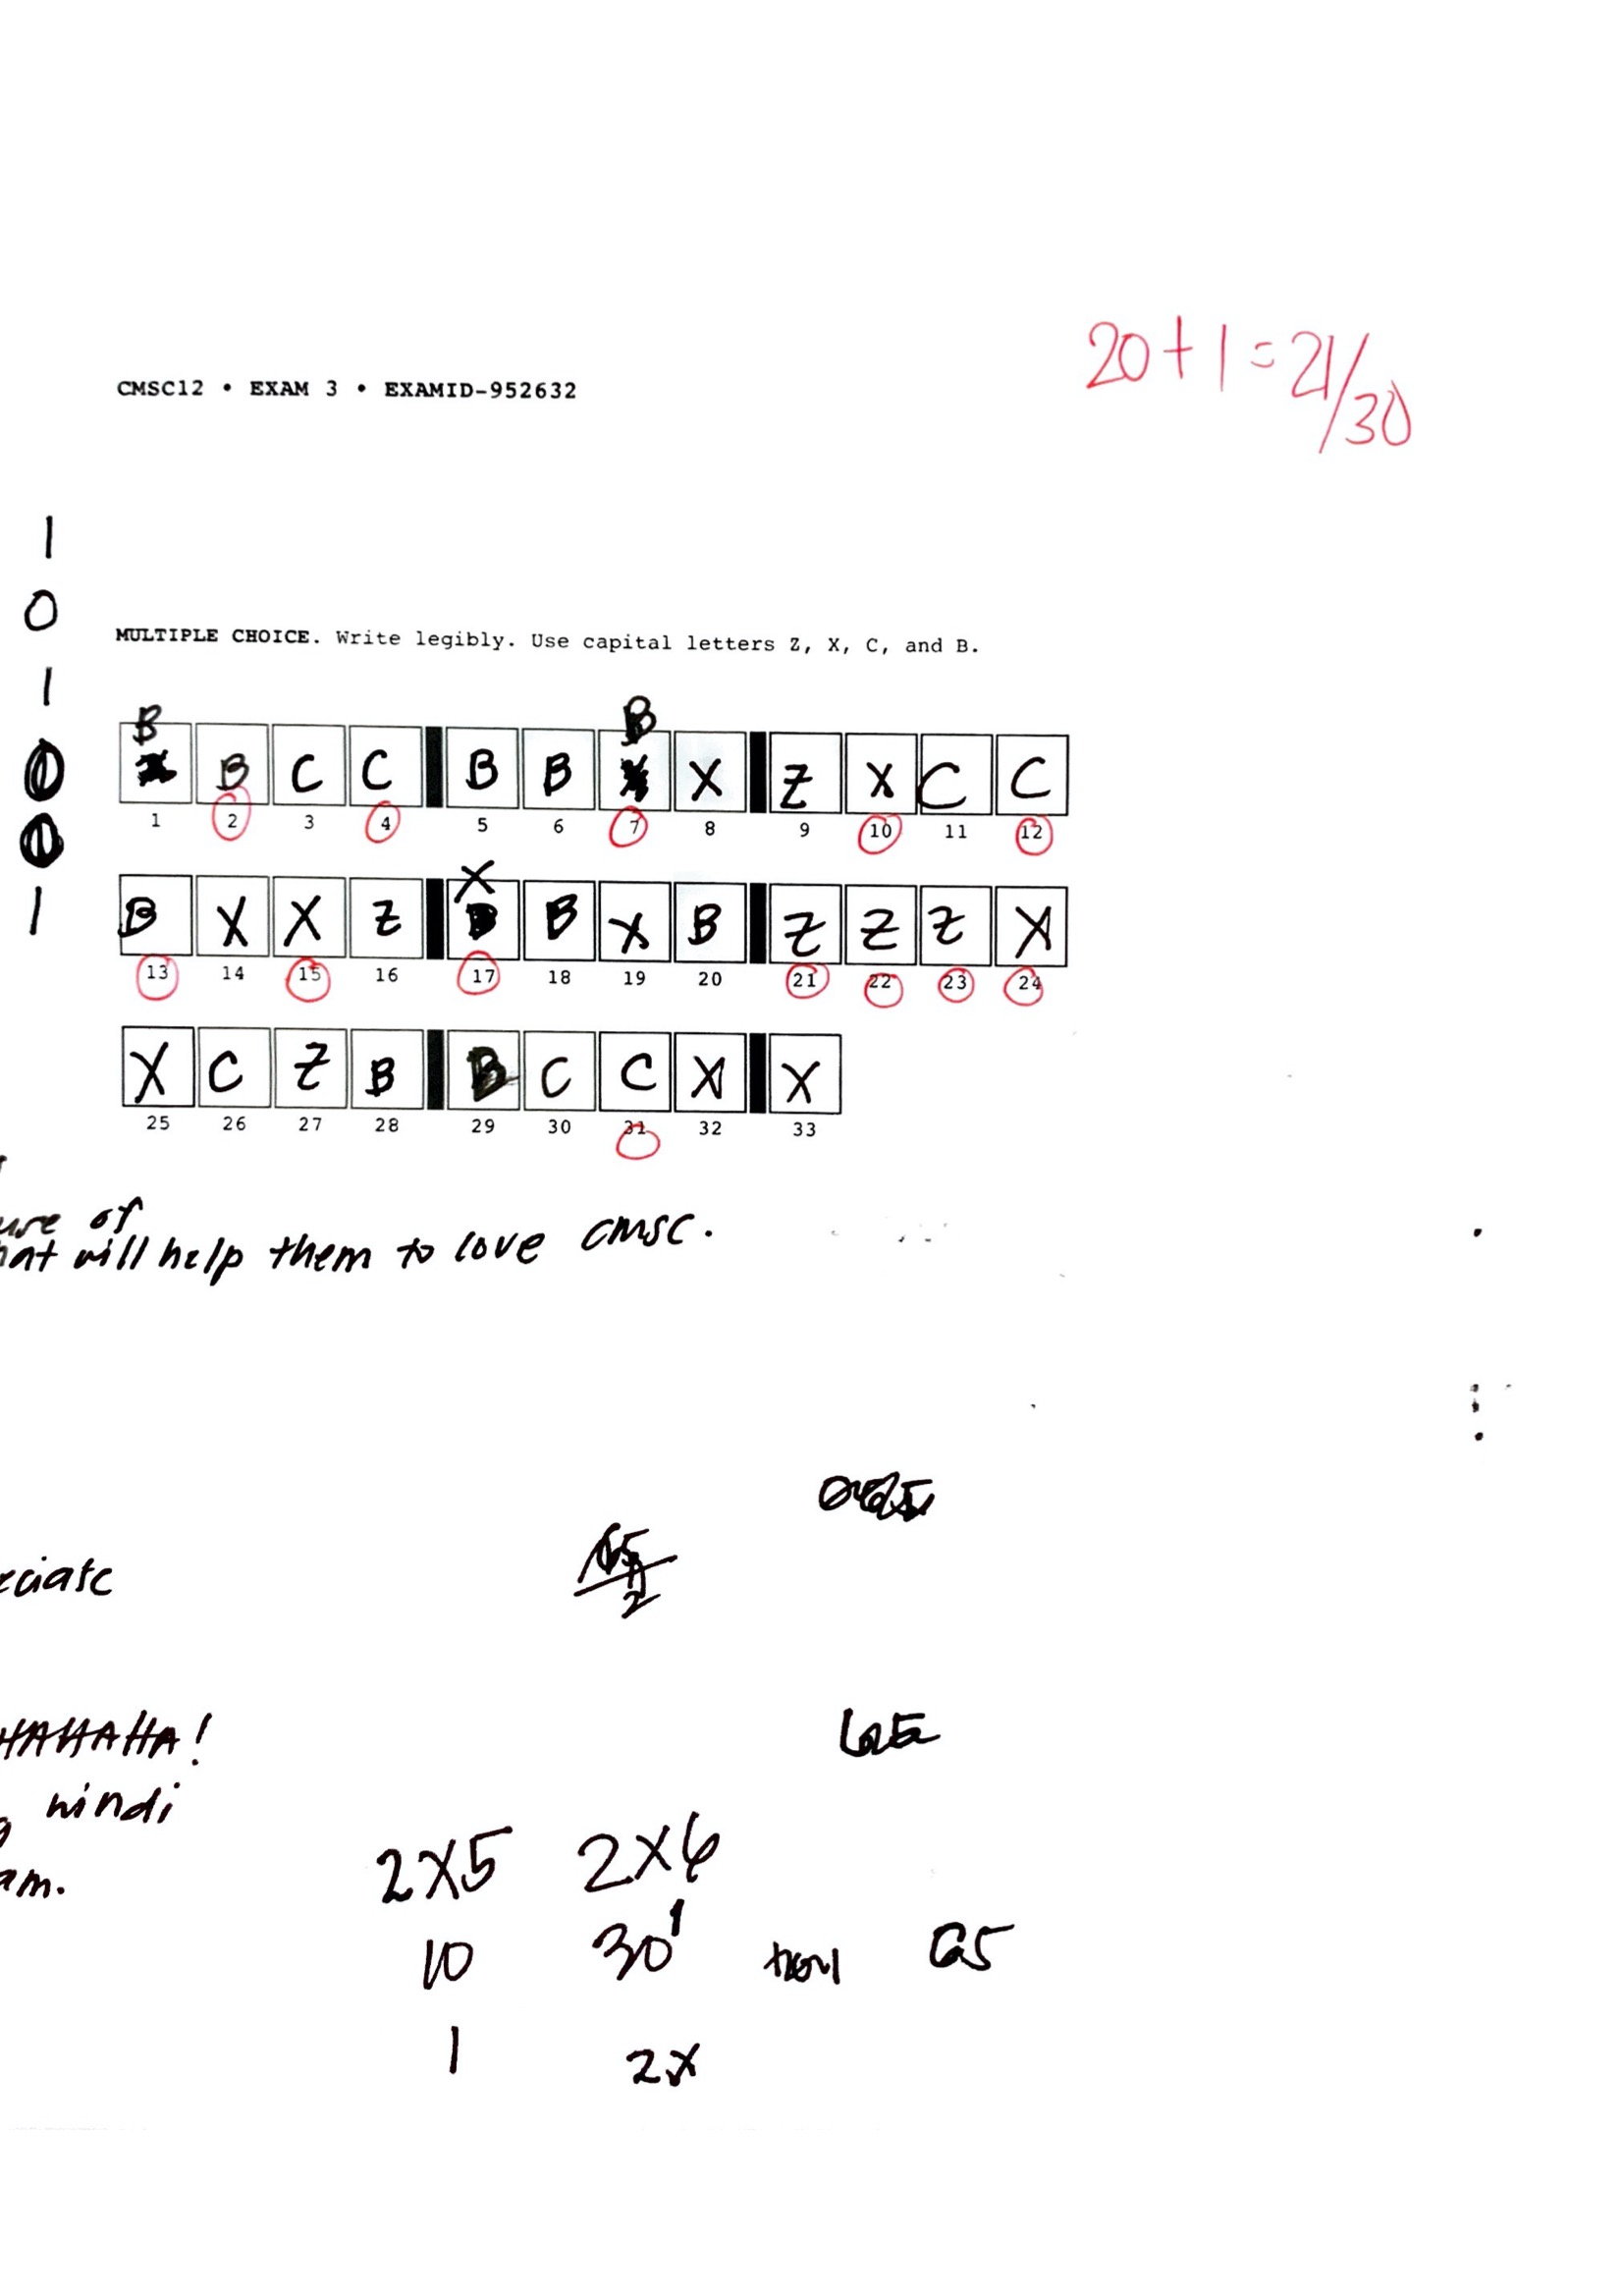 20+1=21/30
CMSC12 • EXAM 3 • EXAMID-952632
1
0
1
MULTIPLE CHOICE. Write legibly. Use capital letters Z, X, C, and B.
B B
B C C B B X Z X C C
1 2 3 4 5 6 7 8 9 10 11 12
1
X
B X X Z B X B Z Z Z X
13 14 15 16 17 18 19 20 21 22 23 24
X C Z B B C C X X
25 26 27 28 29 30 31 32 33
ure of
hat will help them to love cmsc.
eciate
HAHAHA!
hindi
am.
2x5 2x6
10 30
1 2x